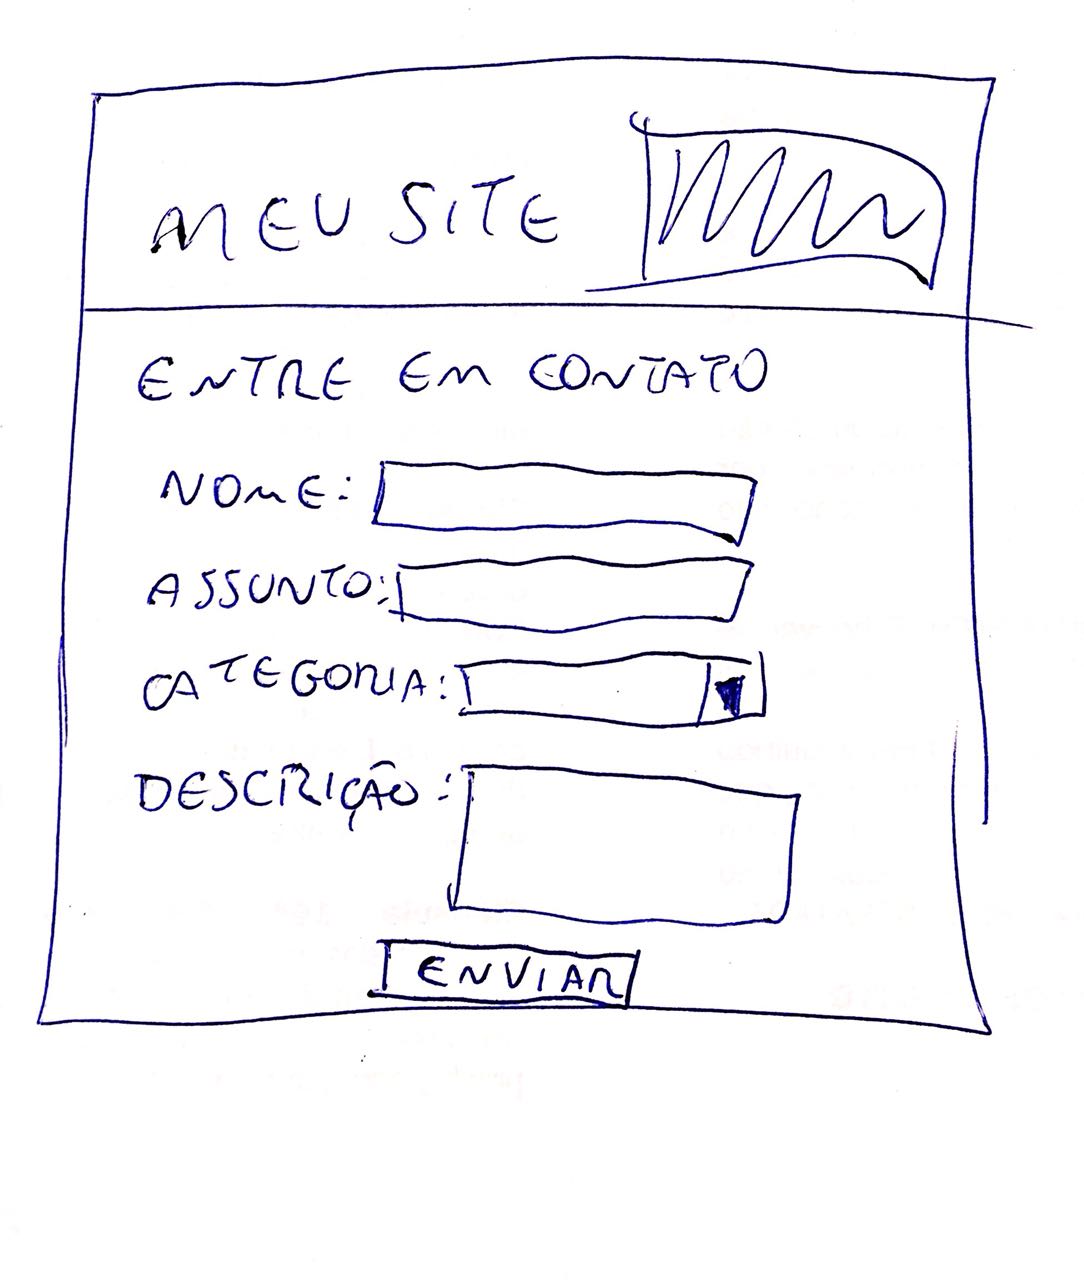 MEU SITE
ENTRE EM CONTATO
NOME:
ASSUNTO:
CATEGORIA:
DESCRIÇÃO:
ENVIAR